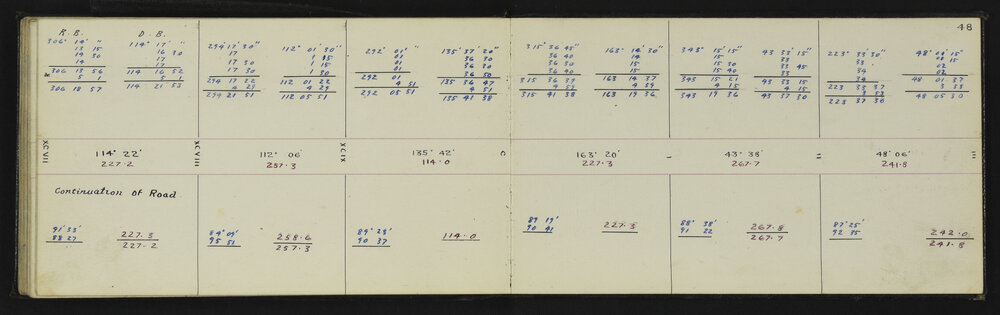 48
R. B. D. B.
306° 14' " 114° 17' "
13 15 16 30
14 30 17
14 17
306 13 56 114 16 52
5 5 1
306 18 57 114 21 53
294 17' 30" 112° 01' 30"
17 1 15
17 30 1 15
17 30 1 30
294 17 22 112 01 22
4 29 4 29
294 21 51 112 05 51
292° 01' " 135° 37' 20"
01 36 30
01 36 30
01 36 50
292 01 135 36 47
4 51 4 51
292 05 51 135 41 38
315° 36 45" 163° 14' 30"
36 40 14
36 30 15
36 40 15
315 36 39 163 14 37
4 59 4 59
315 41 38 163 19 36
343° 15' 15" 43 33' 15"
15 33
15 30 33 45
15 40 33
343 15 21 43 33 15
4 15 4 15
343 19 36 43 37 30
223° 33' 30" 48° 01' 15"
33 02
34 02
34
223 33 37 48 01 37
3 53 3 53
223 37 30 48 05 30
XCVII 114° 22' XCVIII 112° 06' XCIX 135° 42' O 163° 20' – 43° 38' = 48° 06' ≡
227.2 257.3 114.0 227.3 267.7 241.8
Continuation of Road
91° 33' 227.3
88 27 227.2
84° 09' 258.6
95 51 257.3
89° 23' 114.0
90 37
89 19' 227.3
90 41
88° 38' 267.8
91 22 267.7
87° 25' 242.0
92 35 241.8